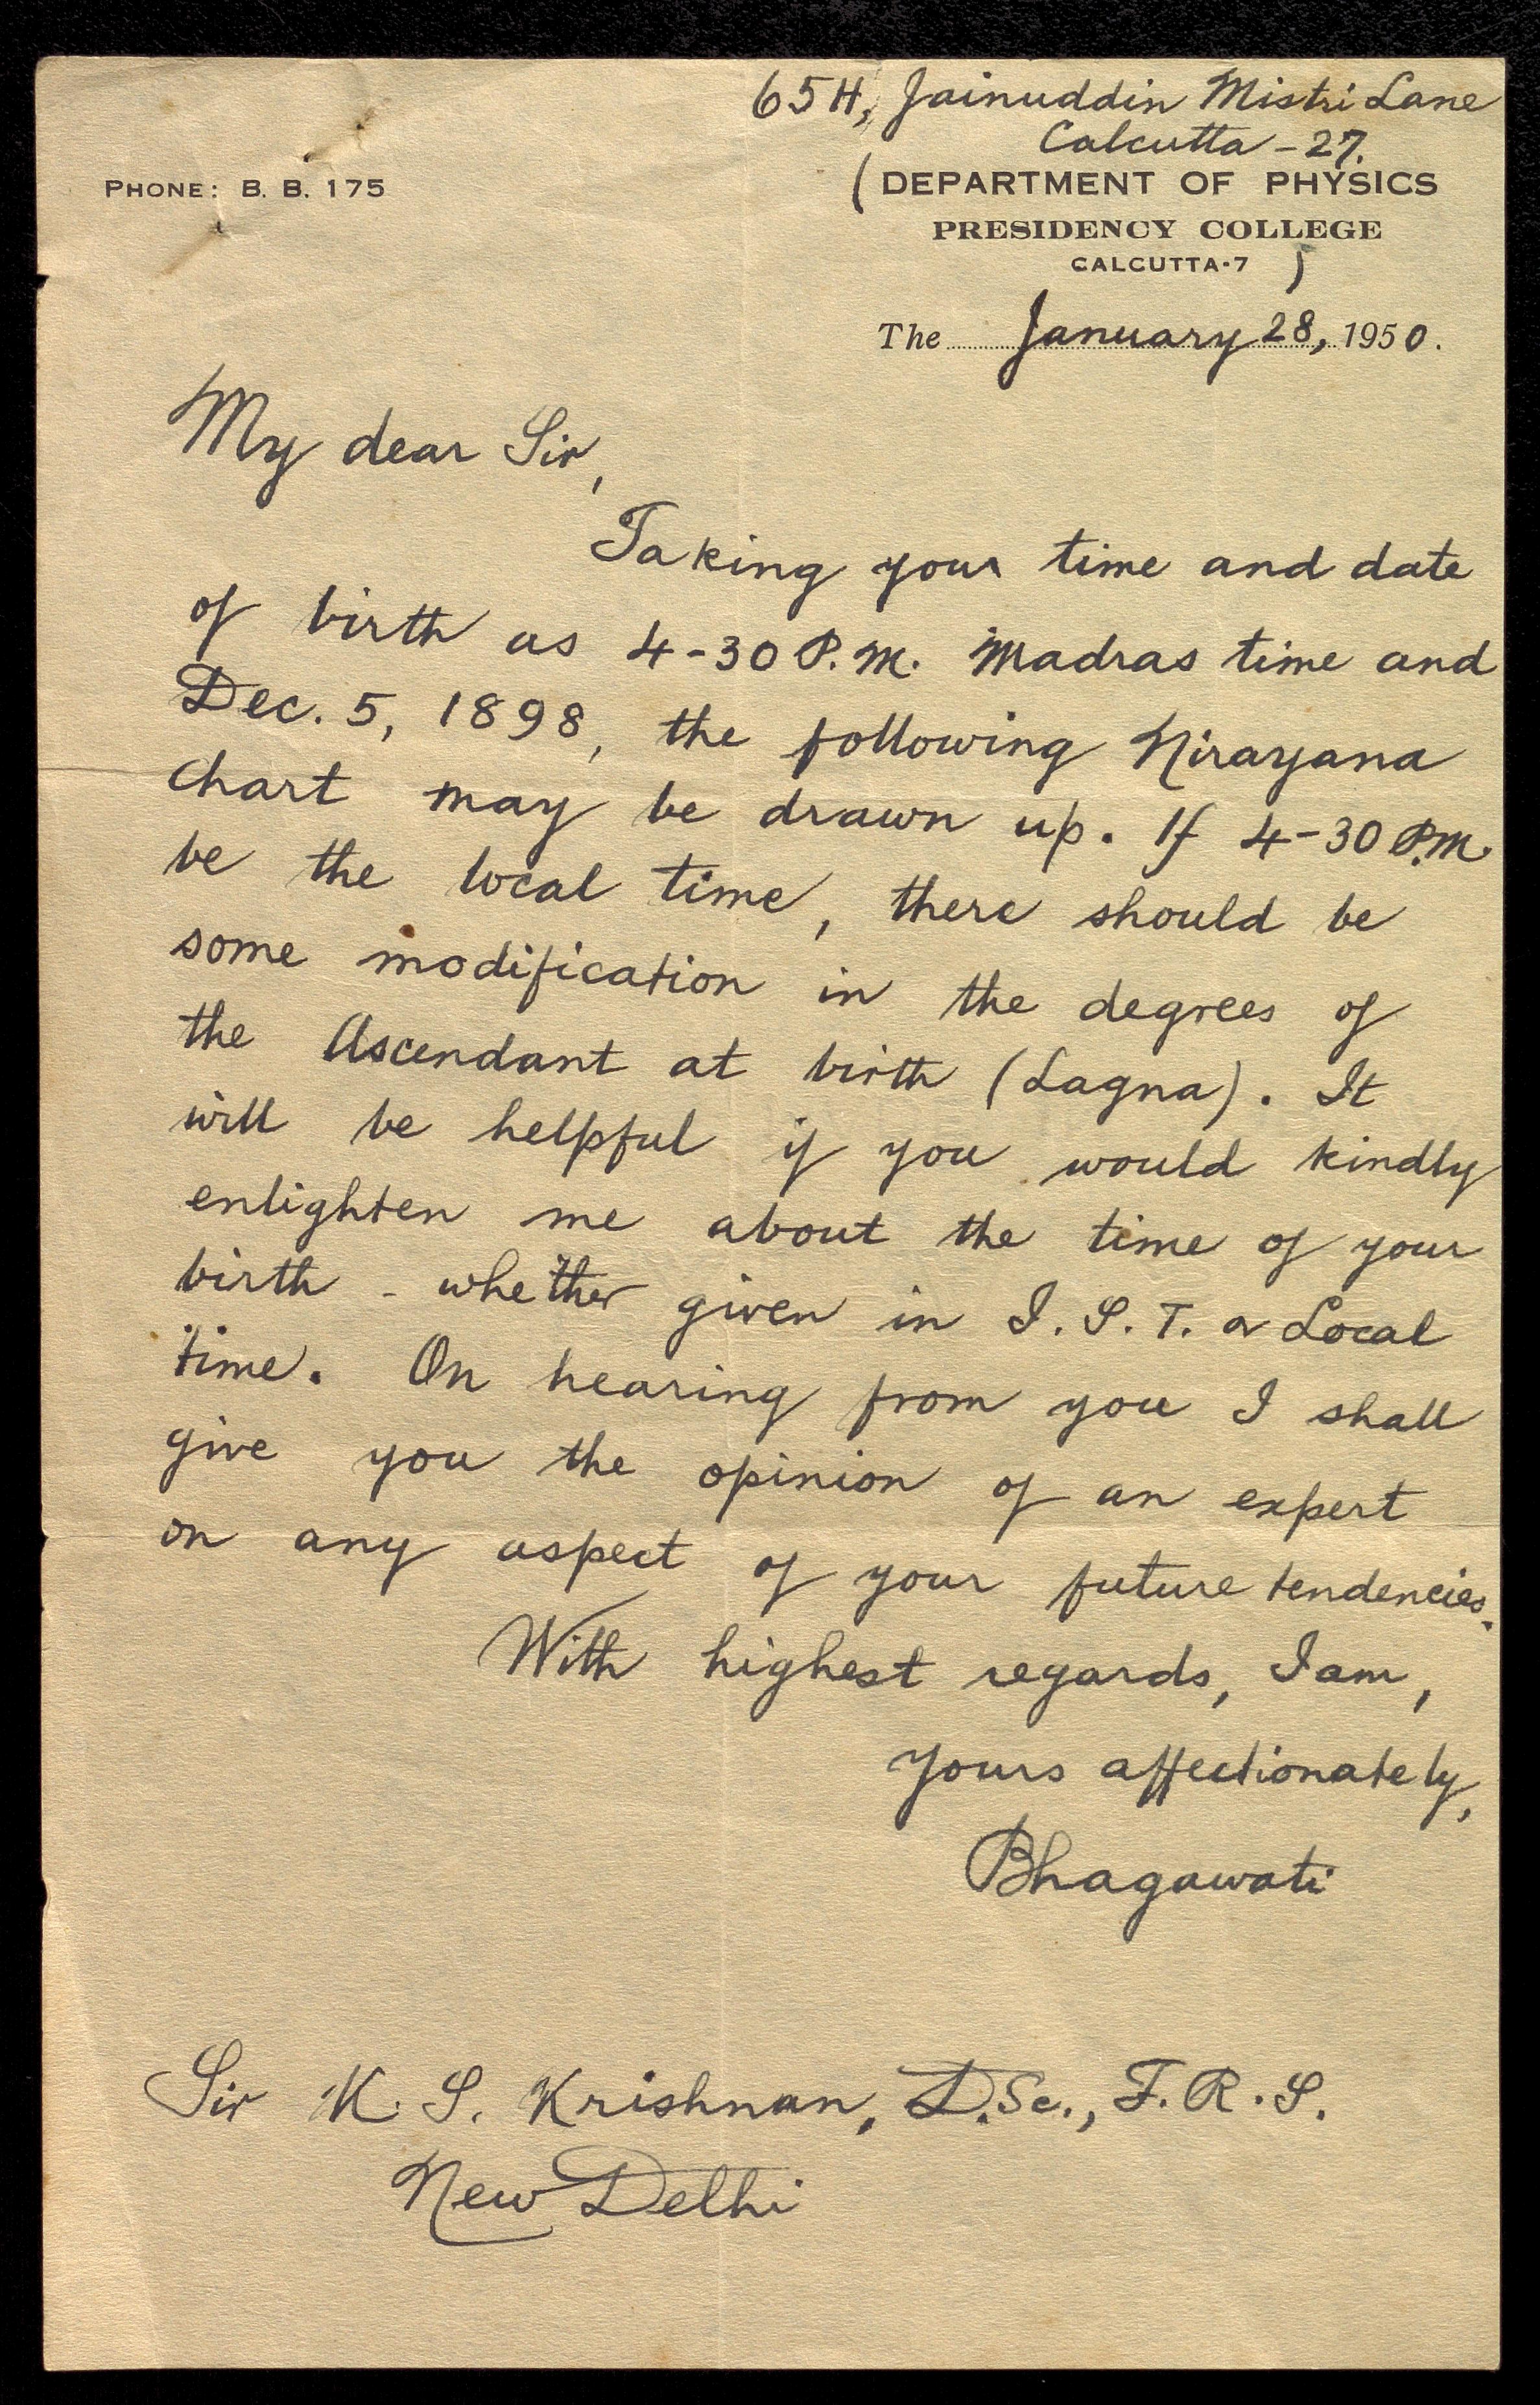 65H, Jainuddin Mistri Lane
Calcutta - 27.
PHONE: B. B. 175
( DEPARTMENT OF PHYSICS
PRESIDENCY COLLEGE
CALCUTTA-7 )
The January 28, 1950.
My dear Sir,
Taking your time and date
of birth as 4-30 P.M. Madras time and
Dec. 5, 1898, the following Nirayana
chart may be drawn up. If 4-30 P.M.
be the local time, there should be
some modification in the degrees of
the Ascendant at birth (Lagna). It
will be helpful if you would kindly
enlighten me about the time of your
birth - whether given in I.S.T. or Local
time. On hearing from you I shall
give you the opinion of an expert
on any aspect of your future tendencies.
With highest regards, I am,
Yours affectionately,
Bhagawati
Sir K. S. Krishnan, D.Sc., F.R.S.
New Delhi